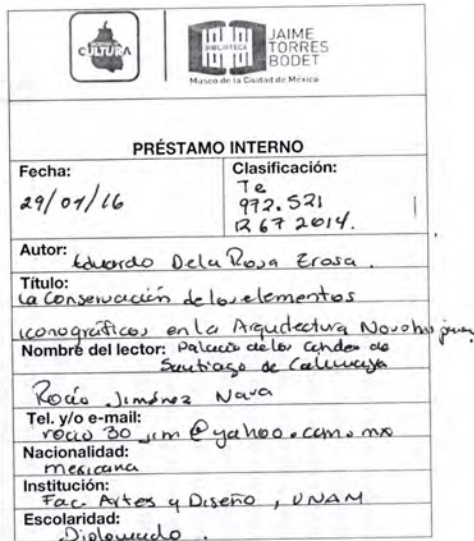 CULTURA
BIBLIOTECA
JAIME
TORRES
BODET
Museo de la Ciudad de México
PRÉSTAMO INTERNO
Fecha:
Clasificación:
29/01/16
Te
972.521
R67 2014.
Autor: Eduardo De la Rosa Erosa.
Título:
La Conservación de los elementos
iconográficos en la Arquitectura Novohispana
Nombre del lector: Palacio de los Condes de
Santiago de Calimaya
Rocío Jiménez Nava
Tel. y/o e-mail:
rocio30_jim@yahoo.com.mx
Nacionalidad:
mexicana
Institución:
Fac. Artes y Diseño, UNAM
Escolaridad:
Diplomado.